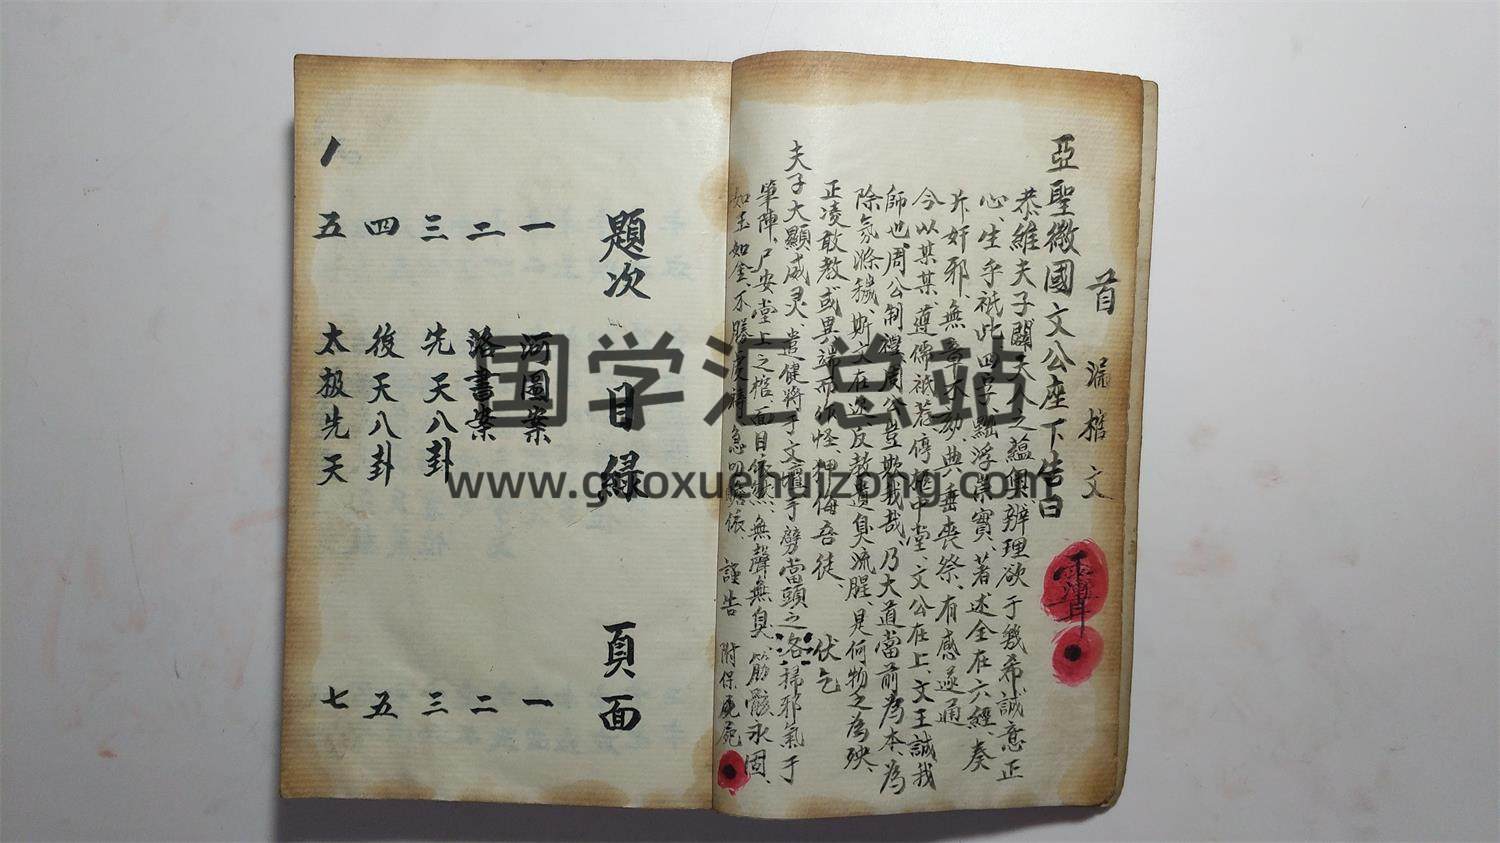 首漏棺文
亞聖徽國文公座下告曰
恭維夫子闢天人之蘊奧、辨理欲于幾希誠意正
心、生乎祇此四字、黜浮崇實、著述全在六經、奏
斥奸邪、無章不劾、典垂喪祭、有感遂通
今以某某、遵儒祇惹停柩中堂、文公在上、文王誠我
師也、周公制禮、周公豈欺我哉、乃大道當前為本、為
除氛滌穢、斯文在邇反教遺臭流腥、是何物之為殃、
正凌敢教或異端而作怪、狎侮吾徒 伏乞
夫子大顯威灵、遣健將于文壇手劈當頭之洛掃邪氣于
筆陣、尸安堂上之棺、面目依然、無聲無臭、筋骸永固、
如玉如金、不勝虔禱、急叩皈依、謹告 附保屍苑
題次 目錄 頁面
一 河圖案 一
二 洛書案 二
三 先天八卦 三
四 後天八卦 五
五 太极先天 七
国学汇总站
www.guoxuehuizong.com